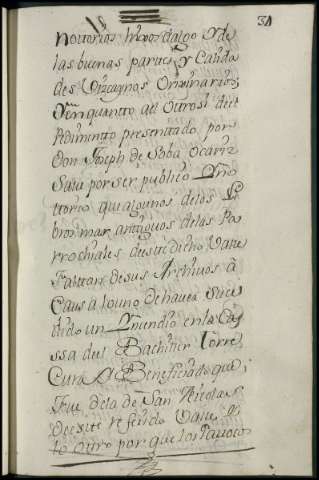 31
nottorios hijos dalgo y de
las buenas partes y Calida
des Vizcaynos Originarios;
Y en quantto al Ottrosi del
Pedimento presenttado por
Don Joseph de Soba Ocariz
Savia por ser publico y no
ttorio que algunos delos Li
bros mas anttiguos delas Pa
rrochiales de este dicho Valle
Falttan desus Archivos à
Caus a louno de haver Suce
dido un Yncendio en la Ca
ssa del Bachiller Torre
Cura y Beneficiado que
Fue dela de San Nicolas
de este referido Valle y
lo ottro por que los Parroco